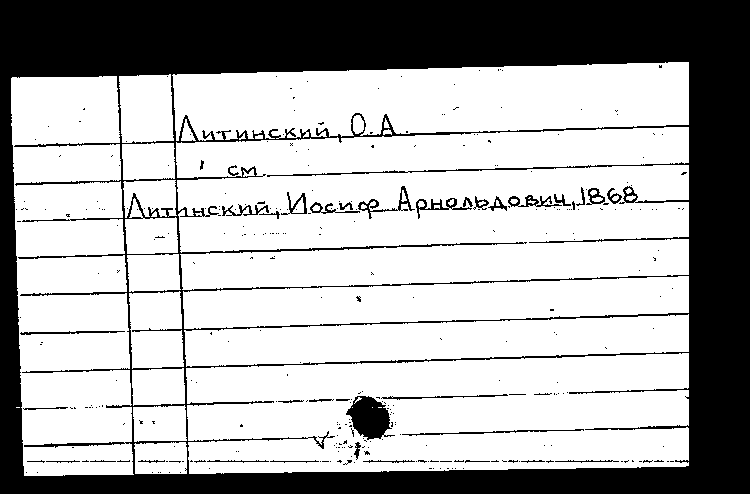 Литинский, О.А.
см.
Литинский, Иосиф Арнольдович, 1868